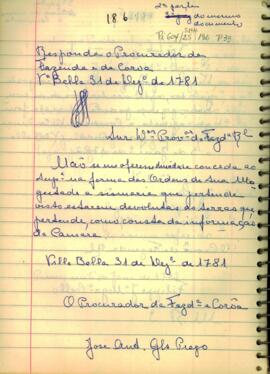 186
2ª parte
do mesmo
documento
Responda o Procurador da
Fazenda e da Coroa
Vª Bella 31 de Dezº de 1781
Snr.
Não se me offerece duvida se conceda ao
Suppᵉ na forma das Ordens de Sua Ma
gestade a sismaria que pertende
visto estarem devolutas as terras que
pertende, como consta da informação
da Camara
Villa Bella 31 de Dezº de 1781
O Procurador da Fazdª e Corôa
Jose Ant. Glz Prego